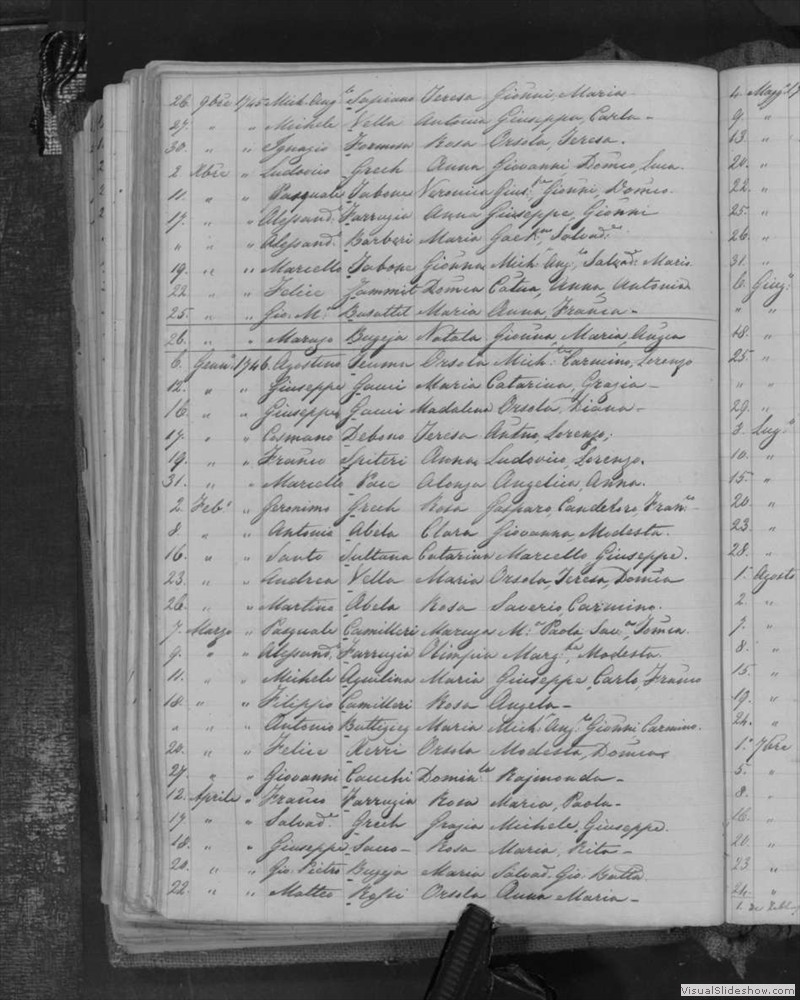 26. 9bre 1745 Mich. Ang.lo Sapiano Teresa Gionni, Maria
27. " " Michele Vella Antonia Giuseppa, Carla -
30. " " Ignazio Formosa Rosa Orsola, Teresa.
2 Xbre " Ludovico Grech Anna Giovanni, Domco, Luca.
11. " " Pasquale Tabone Veronica Gius.e Gionni, Domco.
17. " " Alessand.o Farrugia Anna Giuseppe, Gionni
" " " Alessand.o Barberi Maria Gaet.no Salvad.e
19. " " Marcello Tabone Gionna Mich. Ang.lo Salvad. Mario
22. " " Felice Zammit Domca Catna, Anna, Antonia
25. " " Gio. M.a Busuttil Maria Anna, Franca -
26. " " Bugeja Natala Gionna, Maria,
6. Genn.o 1746. Agostino Orsola Mich. Carmino, Lorenzo
12. " " Giuseppe Gauci Maria Catarina, Grazia -
16. " " Giuseppe Gauci Madalena Orsola, Diana -
17. " " Cosmano Debono Teresa Antno, Lorenzo,
19. " " Franco Spiteri Anna Ludovico, Lorenzo.
31. " " Marcello Pace Aloisa Angelica, Anna.
2. Feb.o " Geronimo Grech Rosa Gasparo, Candeloro, Fran.co
8. " " Antonio Abela Clara Giovanna, Modesta.
16. " " Santo Sultana Catarina Marcello, Giuseppe.
23. " " Andrea Vella Maria Orsola, Teresa, Domca
26. " " Martino Abela Rosa Saverio, Carmino.
7. Marzo " Pasquale Camilleri Maruzza M.a Paola,
9. " " Alessand.o Farrugia Olimpia Marg.ta, Modesta.
11. " " Michele Aquilina Maria Giuseppe, Carlo, Franco
18. " " Filippo Camilleri Rosa Angela -
" " Antonio Buttigieg Maria Mich. Ang.lo Gionni, Carmino.
20. " " Felice Orsola Modesta, Domca
27. " " Giovanni Domin.ca Rajmonda -
12. Aprile " Franco Farrugia Rosa Maria, Paola -
17 " " Salvad.e Grech Grazia Michele, Giuseppe.
18. " " Giuseppe Sacco - Rosa Maria, Rita -
20. " " Gio. Pietro Bugeja Maria Salvad. Gio. Batta
22. " " Matteo Orsola Anna Maria -
4. Magg.o 17
9. "
13. "
20. "
22. "
25. "
26. "
31. "
6. Giug.o
" "
18. "
25. "
" "
29. "
3. Lug.o
10. "
15. "
20 "
23. "
28. "
1. Agosto
2. "
7. "
8. "
15. "
19. "
24. "
1.o 7bre
5. "
8. "
16. "
20. "
23 "
24. "
VisualSlideshow.com